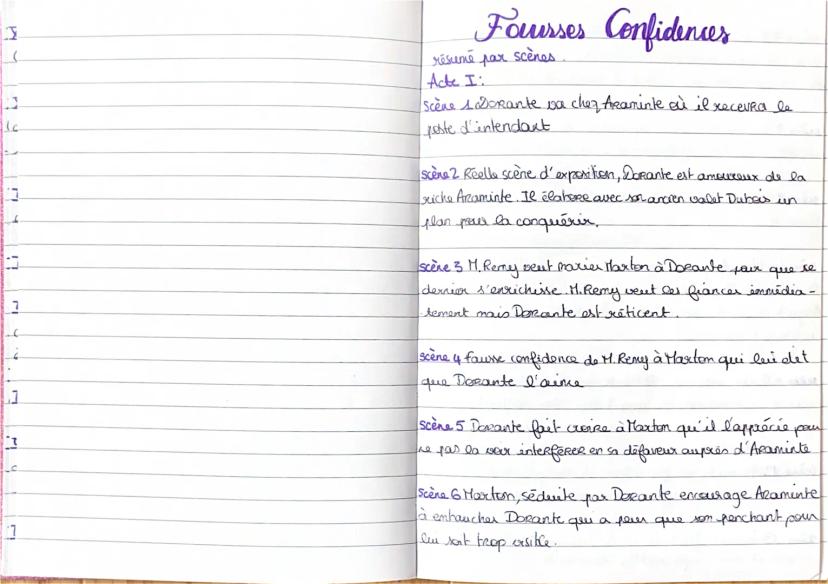 Fausses Confidences
résumé par scènes.
Acte I:
Scène 1 Dorante va chez Araminte où il recevra le
poste d'intendant
scène 2 Réelle scène d'exposition, Dorante est amoureux de la
riche Araminte. Il élabore avec son ancien valet Dubois un
plan pour la conquérir.
scène 3 M. Remy veut marier Marton à Dorante pour que ce
dernier s'enrichisse. M. Remy veut les fiancer immédia-
tement mais Dorante est réticent.
scène 4 fausse confidence de M. Remy à Marton qui lui dit
que Dorante l'aime
scène 5 Dorante fait croire à Marton qu'il l'apprécie pour
ne pas la voir interférer en sa défaveur auprès d'Araminte
scène 6 Marton, séduite par Dorante encourage Araminte
à embaucher Dorante qui a peur que son penchant pour
lui soit trop visible.